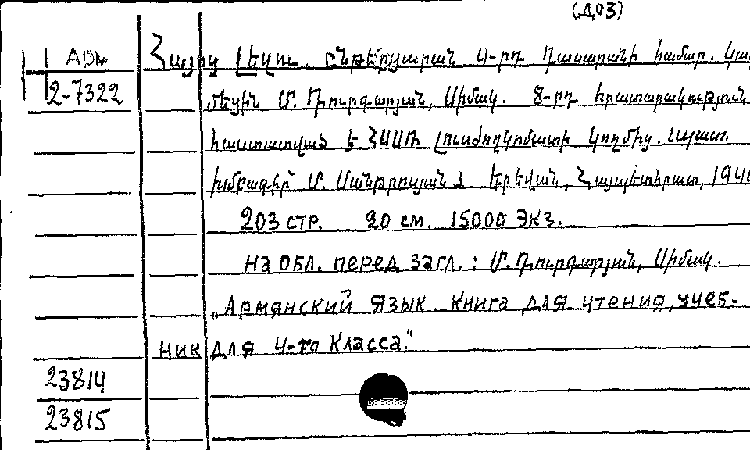 (ДОЗ)
Հայոց լեզու. ընթերցարան 4-րդ դասարանի համար. Կազ-
2-7322
մեցին Մ. Դուրգարյան, Արևակ. 8-րդ հրատարակություն
հաստատված է ՀՍՍՌ Լուսժողկոմատի կողմից.
խմբագիր՝ Մ. Սանթրոսյան Երևան, Հայպետհրատ, 194
203 стр. 20 см. 15000 экз.
на обл. перед загл.: Մ. Դուրգարյան,
„Армянский язык. книга для чтения, учеб-
ник для 4-го класса."
23814
23815